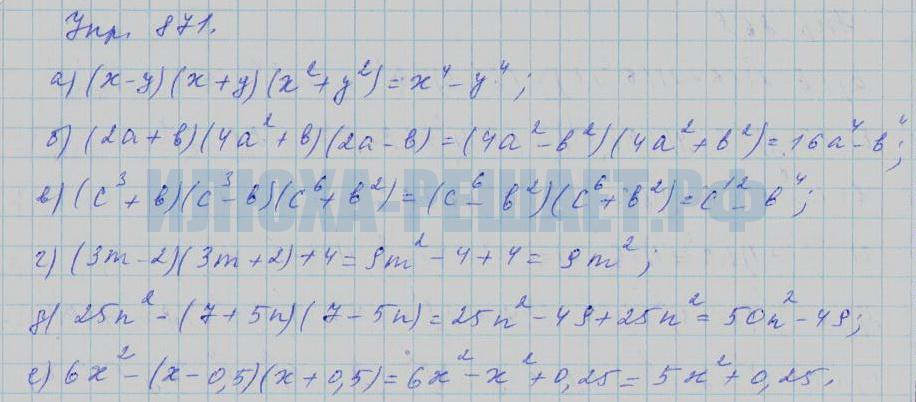 Упр. 871.
а) (x-y)(x+y)(x²+y²)=x⁴-y⁴;
б) (2a+b)(4a²+b)(2a-b)=(4a²-b²)(4a²+b²)=16a⁴-b⁴;
в) (c³+b)(c³-b)(c⁶+b²)=(c⁶-b²)(c⁶+b²)=c¹²-b⁴;
ИЛЮХА-РЕШАЕТ.РФ
г) (3m-2)(3m+2)+4=9m²-4+4=9m²;
д) 25n²-(7+5n)(7-5n)=25n²-49+25n²=50n²-49;
е) 6x²-(x-0,5)(x+0,5)=6x²-x²+0,25=5x²+0,25.